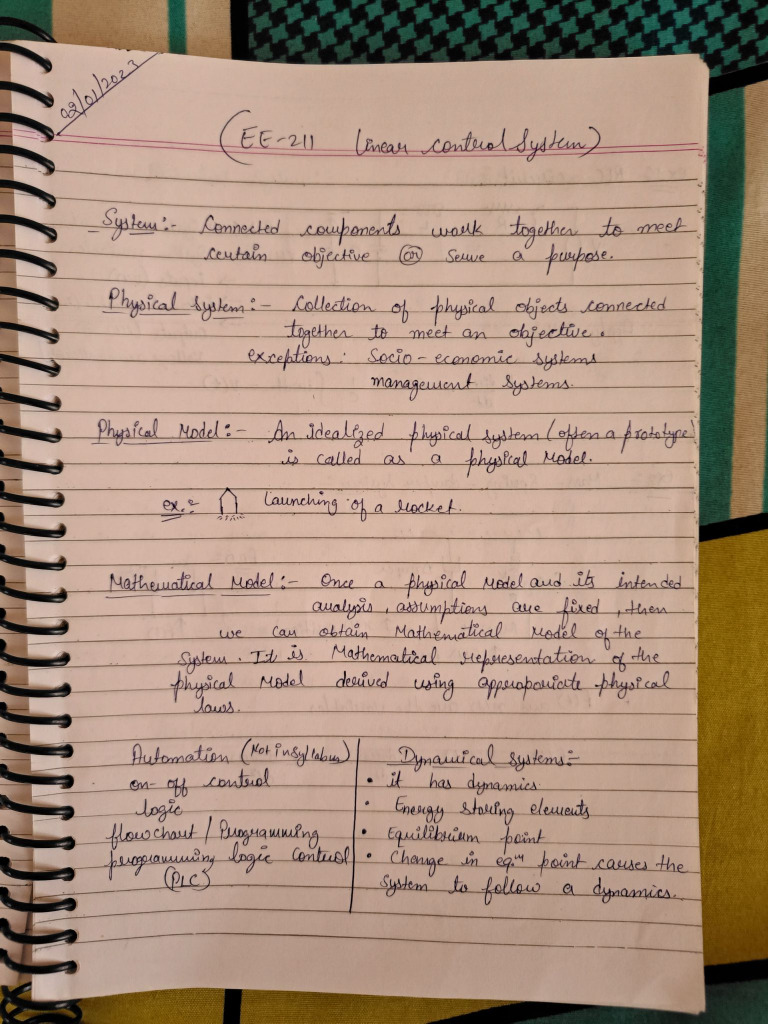 02/01/2023
(EE-211 Linear control System)
System:- Connected components work together to meet
certain objective (or) serve a purpose.
Physical system:- Collection of physical objects connected
together to meet an objective.
exceptions: Socio-economic systems
management systems.
Physical Model:- An idealized physical system (often a prototype)
is called as a physical Model.
ex:- Launching of a rocket.
Mathematical Model:- Once a physical Model and its intended
analysis, assumptions are fixed, then
we can obtain Mathematical Model of the
System. It is Mathematical representation of the
physical Model derived using appropriate physical
laws.
Automation (Not in syllabus)
on-off control
logic
flowchart / Programming
programming logic control
(PLC)
Dynamical systems:-
• it has dynamics
• Energy storing elements
• Equilibrium point
• Change in eqm point causes the
system to follow a dynamics.